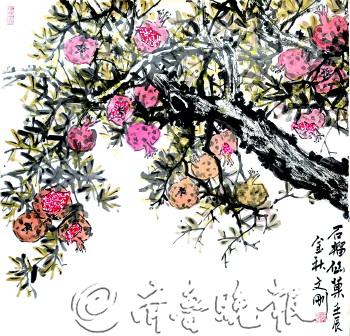 石榴仙菓壬辰
金秋文刚
©齐鲁晚报